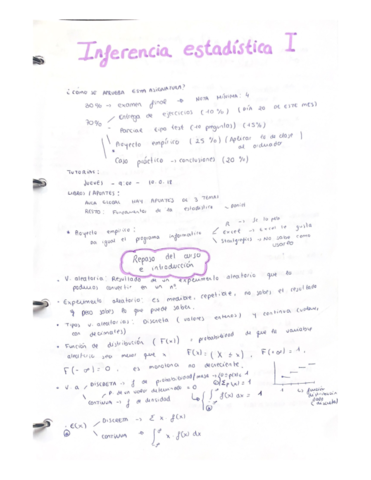 Inferencia estadística I
¿COMO SE APRUEBA ESTA ASIGNATURA?
examen final → NOTA MÍNIMA: 4
70% Entrega de ejercicios (10%) (DIA 20 DE ESTE MES)
Parcial tipo test (10 preguntas) (15%)
Proyecto empírico (25%) (Aplicar lo de clase
al ordenador
Caso práctico → conclusiones (20%)
TUTORIAS:
Jueves
LIBROS / APUNTES:
AULA GLOBAL HAY APUNTES DE 3 TEMAS
RESTO: Fundamentos de la estadística
• Proyecto empírico:
da igual el programa informático
Excel
Statgraphics → NOS DIRÁ COMO
USARLO
Repaso del curso
e introducción
- V. aleatoria: Resultado de un experimento aleatorio que lo
podemos convertir en un nº
- Experimento aleatorio: es medible, repetible, no sabes el resultado
y pero sabes lo que puede salir.
- Tipos v. aleatorias: Discreta (valores enteros) y continua
con decimales)
- Función de distribución (F(x)) = probabilidad de que la variable
aleatoria sea menor que x F(x) = (X ≤ x), F(+∞) = 1,
F(-∞) = 0, es monótona no decreciente.
- V. a DISCRETA → f de probabilidad/masa
P de un valor determinado = 0
CONTINUA → f de densidad ∫ f(x) dx = 1
función
distribución
(discreta)
- E(x) DISCRETO → Σ x · f(x)
CONTINUA → ∫ x · f(x) dx